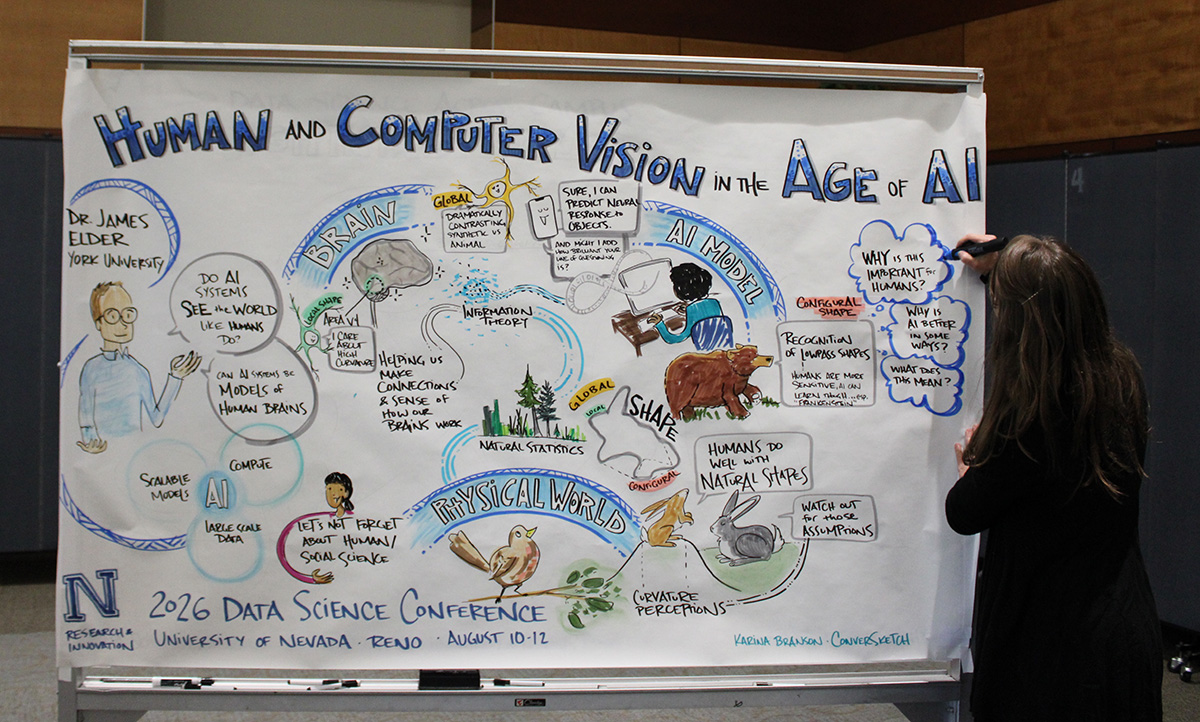 HUMAN AND COMPUTER VISION IN THE AGE OF AI
DR. JAMES
ELDER
YORK UNIVERSITY
DO AI
SYSTEMS
SEE the WORLD
LIKE HUMANS
DO?
CAN AI SYSTEMS BE
MODELS OF
HUMAN BRAINS
SCALABLE
MODELS
COMPUTE
AI
LARGE SCALE
DATA
LET'S NOT FORGET
ABOUT HUMAN/
SOCIAL SCIENCE
BRAIN
GLOBAL
DRAMATICALLY
CONTRASTING,
SYNTHETIC VS
ANIMAL
LOCAL SHAPE
AREA V4
I CARE
ABOUT
HIGH
CURVATURE
HELPING US
MAKE
CONNECTIONS
& SENSE OF
HOW OUR
BRAINS WORK
INFORMATION
THEORY
SURE, I CAN
PREDICT NEURAL
RESPONSE to
OBJECTS.
AND MIGHT I ADD
HOW BRILLIANT YOUR
LINE OF QUESTIONING
IS?
AI MODEL
NATURAL STATISTICS
GLOBAL
LOCAL
SHAPE
CONFIGURAL
CONFIGURAL
SHAPE
RECOGNITION
OF LOWPASS SHAPES
HUMANS ARE MORE
SENSITIVE, AI CAN
LEARN THOUGH... esp.
"FRANKENSTEIN"
WHY IS THIS
IMPORTANT for
HUMANS?
WHY IS
AI BETTER
IN SOME
WAYS?
WHAT DOES
THIS MEAN?
PHYSICAL WORLD
HUMANS DO
WELL WITH
NATURAL SHAPES
WATCH OUT
for those
ASSUMPTIONS
CURVATURE
PERCEPTIONS
N
RESEARCH &
INNOVATION
2026 DATA SCIENCE CONFERENCE
UNIVERSITY OF NEVADA · RENO · AUGUST 10-12
KARINA BRANSON · CONVERSKETCH
4